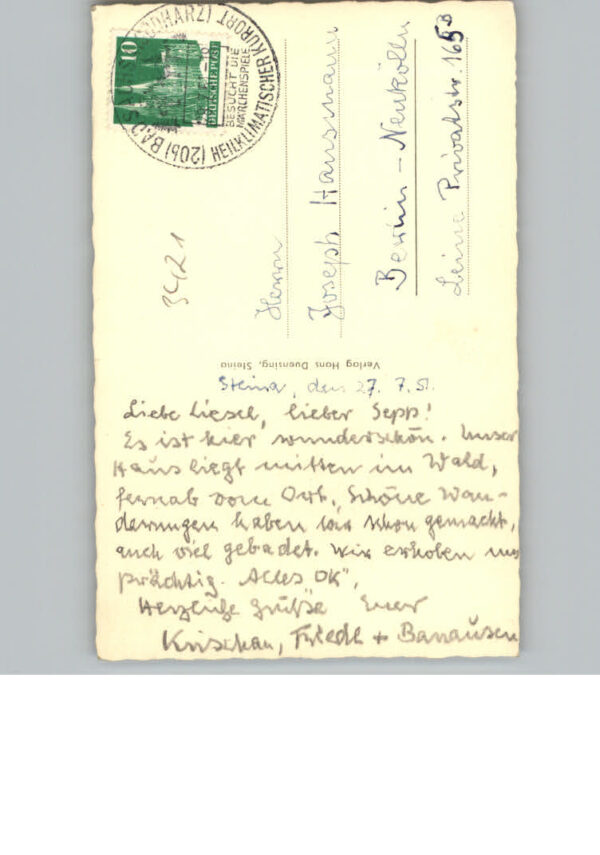 Steina, den 27. 7. 51.
Liebe Liesel, lieber Sepp!
Es ist hier wunderschön. Unser
Haus liegt mitten im Wald,
fernab vom Ort. Schöne Wan-
derungen haben wir schon gemacht,
auch viel gebadet. Wir erholen uns
prächtig. Alles OK",
Herzliche Grüße Euer
Krischan, Friedl + Banausen
Verlag Hans Duensing, Steina
Herrn
Joseph Hausmann
Berlin - Neukölln
Leine Privatstr. 165B
3421
10
DEUTSCHE POST
(20b) BAD SA
DHARZ)
HEILKLIMATISCHER KURORT
BESUCHT DIE
MÄRCHENSPIELE